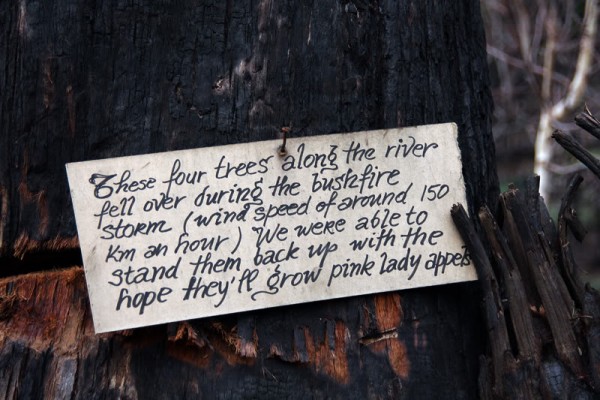 These four trees along the river
fell over during the bushfire
storm (wind speed of around 150
km an hour) We were able to
stand them back up with the
hope they'll grow pink lady appels